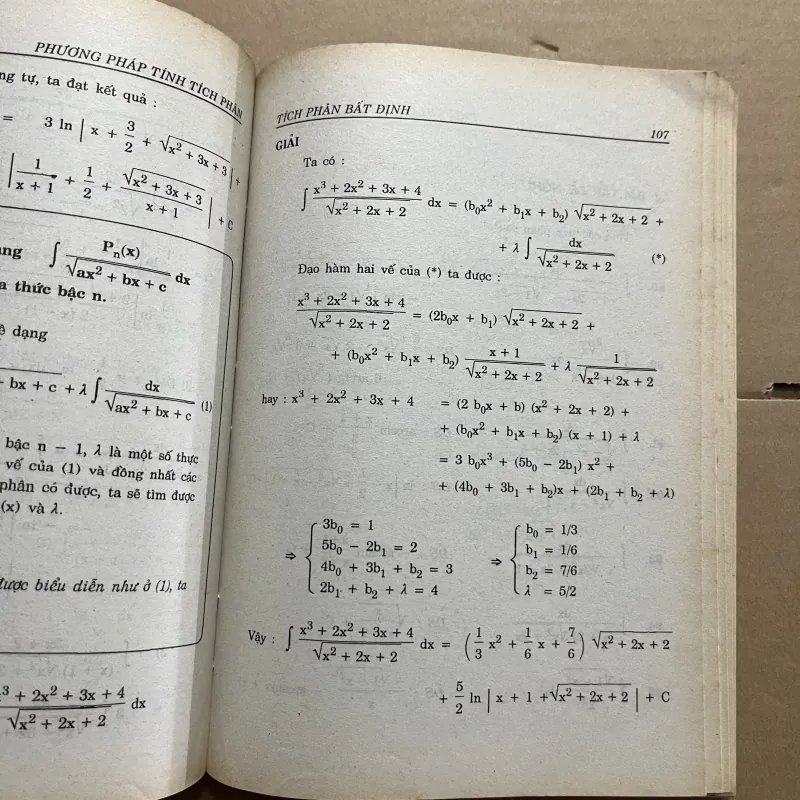 PHƯƠNG PHÁP TÍNH TÍCH PHÂN
ng tự, ta đạt kết quả :
= 3 ln | x + 3/2 + √(x² + 3x + 3) | +
| 1/(x + 1) + 1/2 + √(x² + 3x + 3)/(x + 1) | + C
ạng ∫ Pₙ(x)/√(ax² + bx + c) dx
a thức bậc n.
ề dạng
+ bx + c + λ ∫ dx/√(ax² + bx + c) (1)
bậc n − 1, λ là một số thực
vế của (1) và đồng nhất các
phân có được, ta sẽ tìm được
(x) và λ.
được biểu diễn như ở (1), ta
x³ + 2x² + 3x + 4/√(x² + 2x + 2) dx
TÍCH PHÂN BẤT ĐỊNH 107
GIẢI
Ta có :
∫ (x³ + 2x² + 3x + 4)/√(x² + 2x + 2) dx = (b₀x² + b₁x + b₂) √(x² + 2x + 2) +
+ λ ∫ dx/√(x² + 2x + 2) (*)
Đạo hàm hai vế của (*) ta được :
(x³ + 2x² + 3x + 4)/√(x² + 2x + 2) = (2b₀x + b₁) √(x² + 2x + 2) +
+ (b₀x² + b₁x + b₂) (x + 1)/√(x² + 2x + 2) + λ 1/√(x² + 2x + 2)
hay : x³ + 2x² + 3x + 4 = (2 b₀x + b) (x² + 2x + 2) +
+ (b₀x² + b₁x + b₂) (x + 1) + λ
= 3 b₀x³ + (5b₀ − 2b₁) x² +
+ (4b₀ + 3b₁ + b₂)x + (2b₁ + b₂ + λ)
⇒ { 3b₀ = 1 ⇒ { b₀ = 1/3
5b₀ − 2b₁ = 2 b₁ = 1/6
4b₀ + 3b₁ + b₂ = 3 b₂ = 7/6
2b₁ + b₂ + λ = 4 λ = 5/2
Vậy : ∫ (x³ + 2x² + 3x + 4)/√(x² + 2x + 2) dx = (1/3 x² + 1/6 x + 7/6) √(x² + 2x + 2)
+ 5/2 ln | x + 1 + √(x² + 2x + 2) | + C